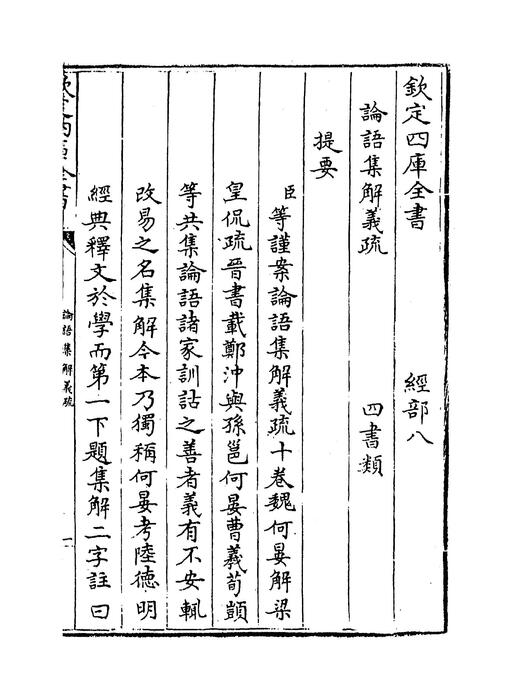 欽定四庫全書　經部八
論語集解義疏　四書類
提要
臣等謹案論語集解義疏十卷魏何晏解梁
皇侃疏晉書載鄭沖與孫邕何晏曹羲荀顗
等共集論語諸家訓詁之善者義有不安輒
改易之名集解今本乃獨稱何晏考陸德明
經典釋文於學而第一下題集解二字註曰
欽定四庫全書
論語集解義疏
一